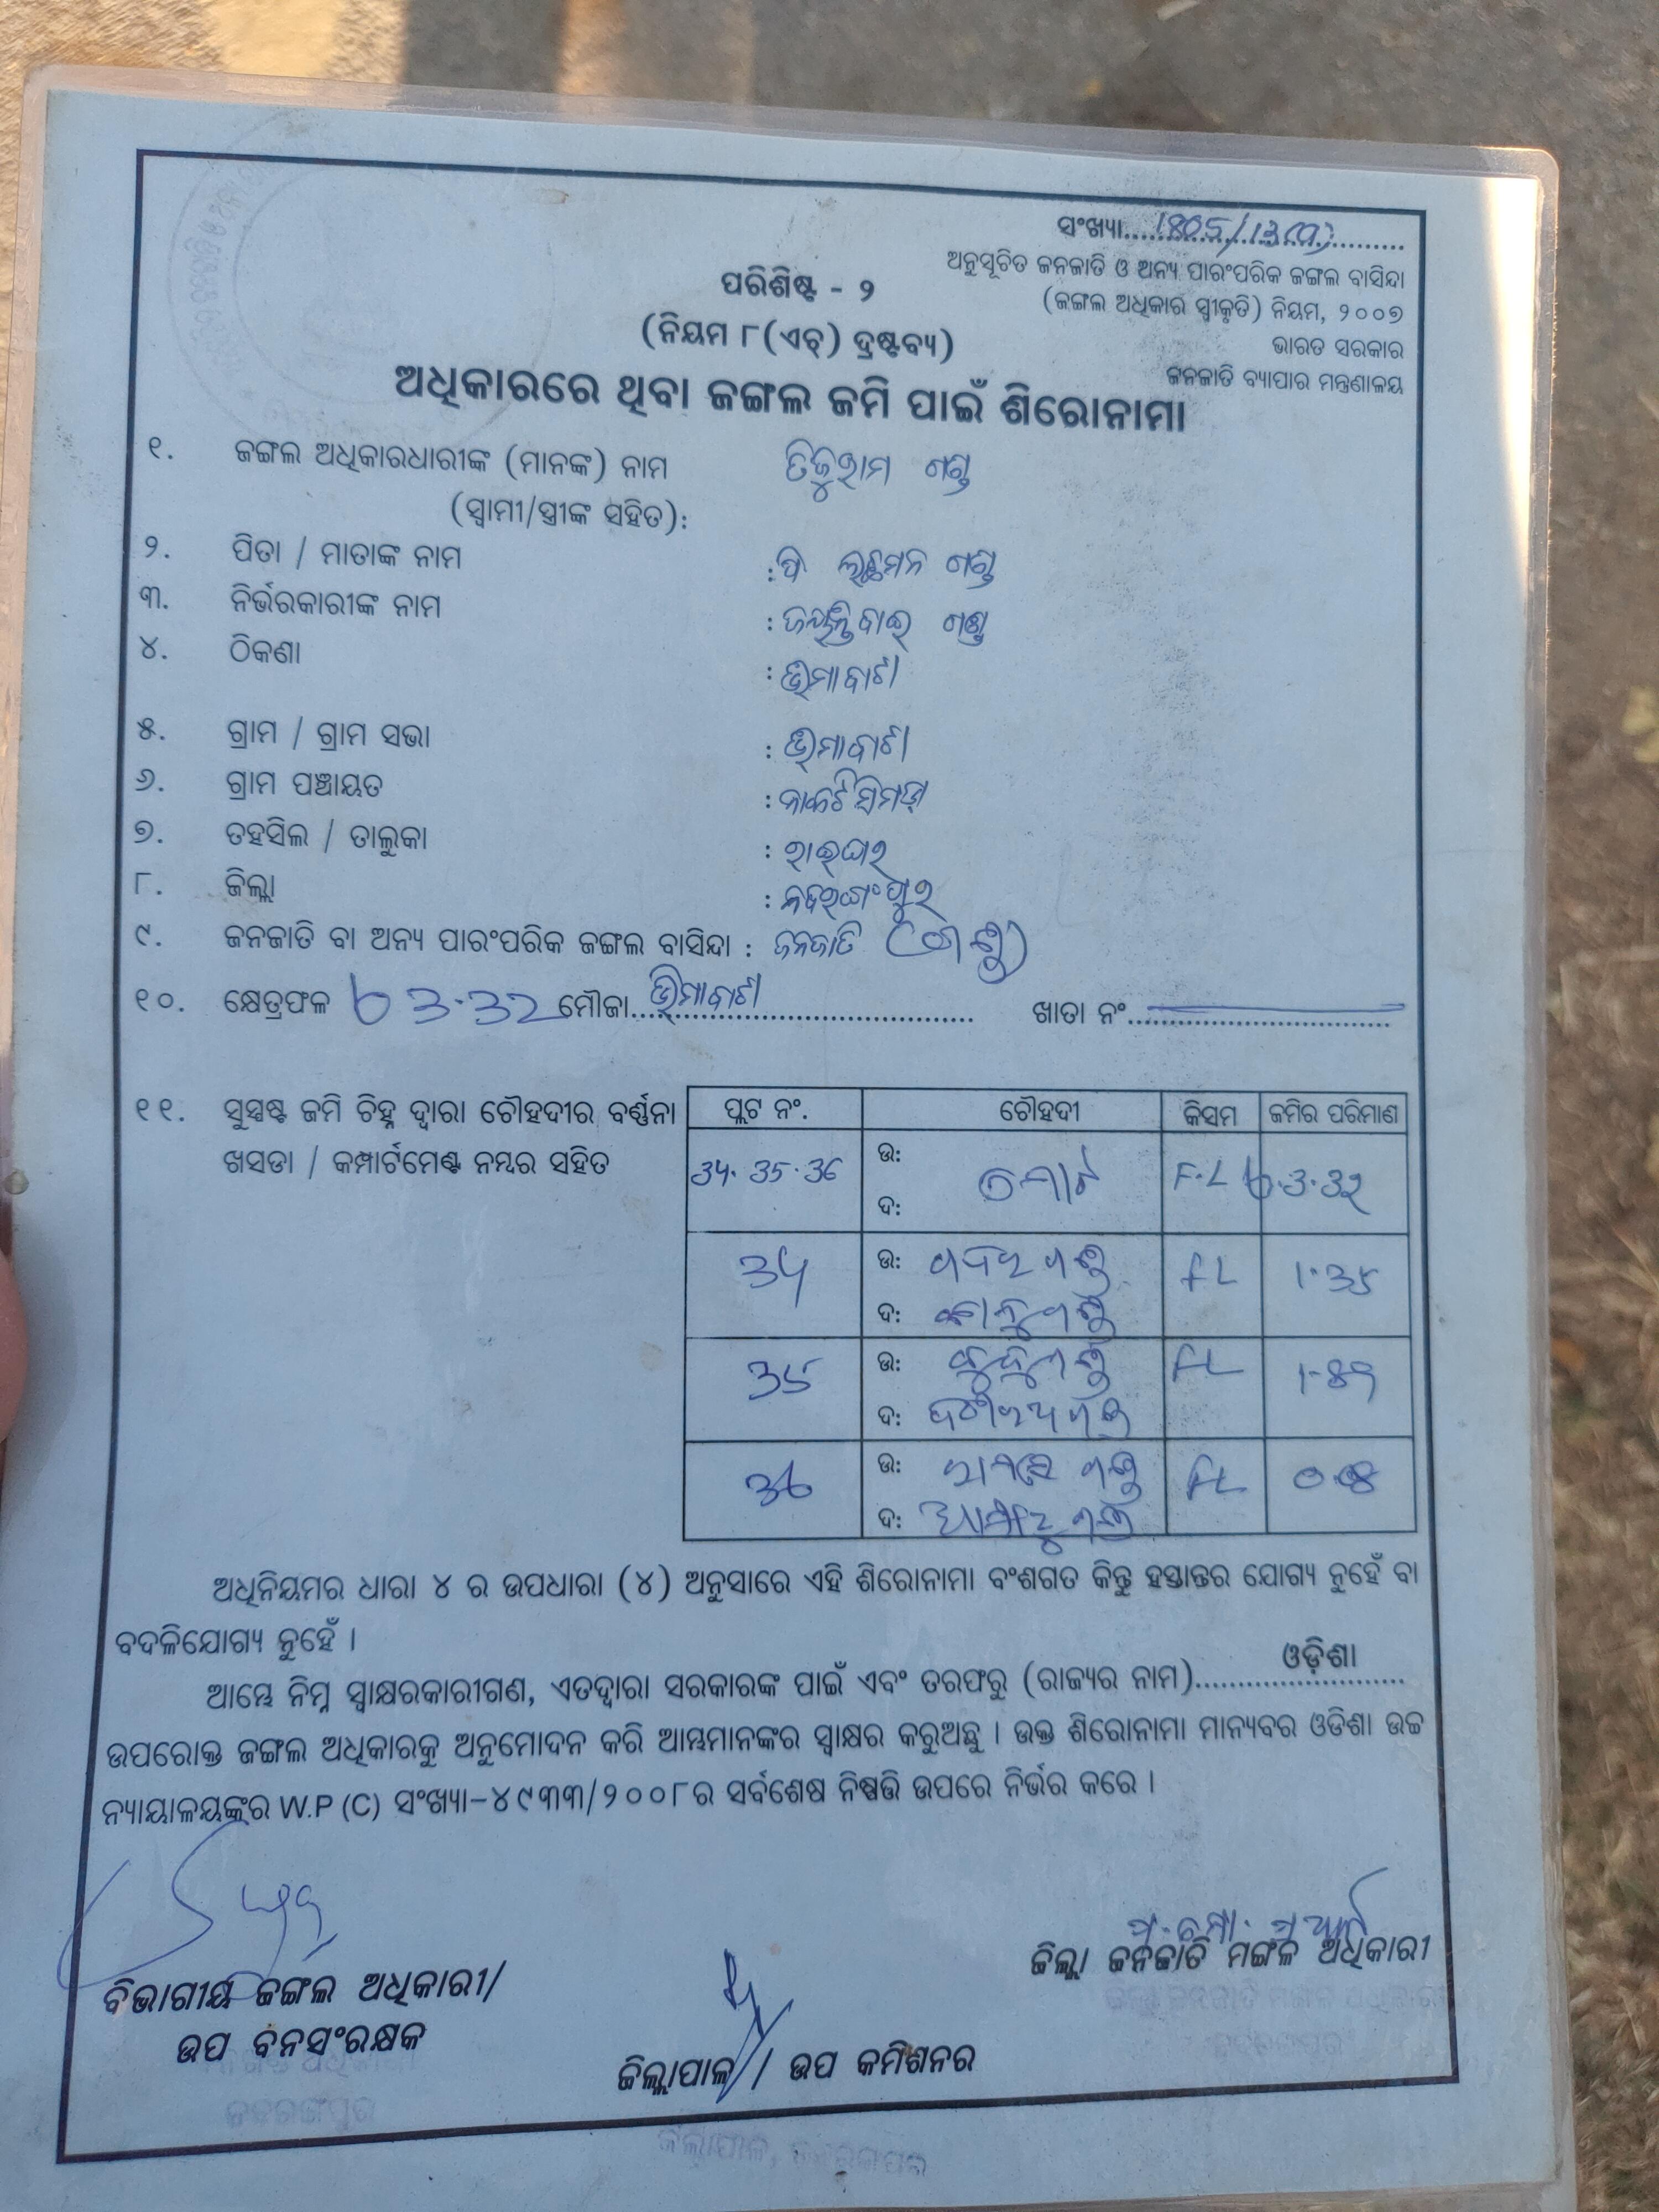 ସଂଖ୍ୟା
ଅନୁସୂଚିତ ଜନଜାତି ଓ ଅନ୍ୟ ପାରଂପରିକ ଜଙ୍ଗଲ ବାସିନ୍ଦା
(ଜଙ୍ଗଲ ଅଧିକାର ସ୍ୱୀକୃତି) ନିୟମ, ୨୦୦୭
ଭାରତ ସରକାର
ଜନଜାତି ବ୍ୟାପାର ମନ୍ତ୍ରଣାଳୟ
ପରିଶିଷ୍ଟ - ୨
(ନିୟମ ୮(ଏଚ୍) ଦ୍ରଷ୍ଟବ୍ୟ)
ଅଧିକାରରେ ଥିବା ଜଙ୍ଗଲ ଜମି ପାଇଁ ଶିରୋନାମା
୧. ଜଙ୍ଗଲ ଅଧିକାରଧାରୀଙ୍କ (ମାନଙ୍କ) ନାମ ତିଜୁରାମ ଗଣ୍ଡ
(ସ୍ୱାମୀ/ସ୍ତ୍ରୀଙ୍କ ସହିତ):
୨. ପିତା / ମାତାଙ୍କ ନାମ : ପି ଲଛମନ ଗଣ୍ଡ
୩. ନିର୍ଭରକାରୀଙ୍କ ନାମ : ଜୟନ୍ତିବାଇ ଗଣ୍ଡ
୪. ଠିକଣା : ଭିମାବାଟା
୫. ଗ୍ରାମ / ଗ୍ରାମ ସଭା : ଭିମାବାଟା
୬. ଗ୍ରାମ ପଞ୍ଚାୟତ :
୭. ତହସିଲ / ତାଲୁକା : ରାଇଘର
୮. ଜିଲ୍ଲା : ନବରଙ୍ଗପୁର
୯. ଜନଜାତି ବା ଅନ୍ୟ ପାରଂପରିକ ଜଙ୍ଗଲ ବାସିନ୍ଦା : ଜନଜାତି (ଗଣ୍ଡ)
୧୦. କ୍ଷେତ୍ରଫଳ 3.32 ମୌଜା ଭିମାବାଟା ଖାତା ନଂ
୧୧. ସୁସ୍ପଷ୍ଟ ଜମି ଚିହ୍ନ ଦ୍ୱାରା ଚୌହଦୀର ବର୍ଣ୍ଣନା
ଖସଡା / କମ୍ପାର୍ଟମେଣ୍ଟ ନମ୍ବର ସହିତ
ପ୍ଲଟ ନଂ. ଚୌହଦୀ କିସମ ଜମିର ପରିମାଣ
34. 35. 36 ଉ: F.L 3.32
ଦ:
34 ଉ: FL 1.35
ଦ:
35 ଉ: FL
ଦ:
36 ଉ: FL
ଦ:
ଅଧିନିୟମର ଧାରା ୪ ର ଉପଧାରା (୪) ଅନୁସାରେ ଏହି ଶିରୋନାମା ବଂଶଗତ କିନ୍ତୁ ହସ୍ତାନ୍ତର ଯୋଗ୍ୟ ନୁହେଁ ବା
ବଦଳିଯୋଗ୍ୟ ନୁହେଁ ।
ଆମ୍ଭେ ନିମ୍ନ ସ୍ୱାକ୍ଷରକାରୀଗଣ, ଏତଦ୍ୱାରା ସରକାରଙ୍କ ପାଇଁ ଏବଂ ତରଫରୁ (ରାଜ୍ୟର ନାମ) ଓଡ଼ିଶା
ଉପରୋକ୍ତ ଜଙ୍ଗଲ ଅଧିକାରକୁ ଅନୁମୋଦନ କରି ଆମ୍ଭମାନଙ୍କର ସ୍ୱାକ୍ଷର କରୁଅଛୁ । ଉକ୍ତ ଶିରୋନାମା ମାନ୍ୟବର ଓଡିଶା ଉଚ୍ଚ
ନ୍ୟାୟାଳୟଙ୍କର W.P (C) ସଂଖ୍ୟା-୪୯୩୩/୨୦୦୮ର ସର୍ବଶେଷ ନିଷ୍ପତ୍ତି ଉପରେ ନିର୍ଭର କରେ ।
ବିଭାଗୀୟ ଜଙ୍ଗଲ ଅଧିକାରୀ/
ଉପ ବନସଂରକ୍ଷକ
ଜିଲ୍ଲାପାଳ / ଉପ କମିଶନର
ଜିଲ୍ଲା ଜନଜାତି ମଙ୍ଗଳ ଅଧିକାରୀ